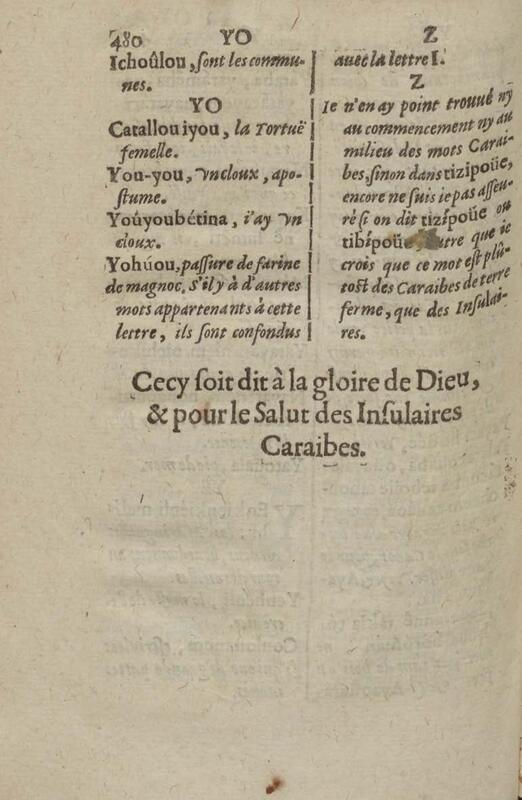 480 YO Z
Ichoûlou, ſont les commu-
nes.
YO
Catallou iyou, la Tortuë
femelle.
You-you, vn cloux, apo-
ſtume.
Yoûyoubétina, i'ay vn
cloux.
Yohúou, paſſure de farine
de magnoc. S'il y à d'autres
mots appartenants à cette
lettre, ils ſont confondus
auec la lettre I.
Z
Ie n'en ay point trouué ny
au commencement ny au
milieu des mots Carai-
bes, ſinon dans tizipoüe,
encore ne ſuis ie pas aſſeu-
ré ſi on dit tizípoüe ou
tibípoüe, outre que ie
crois que ce mot eſt plû-
toſt des Caraibes de terre
ferme, que des Inſulai-
res.
Cecy ſoit dit à la gloire de Dieu,
& pour le Salut des Inſulaires
Caraibes.